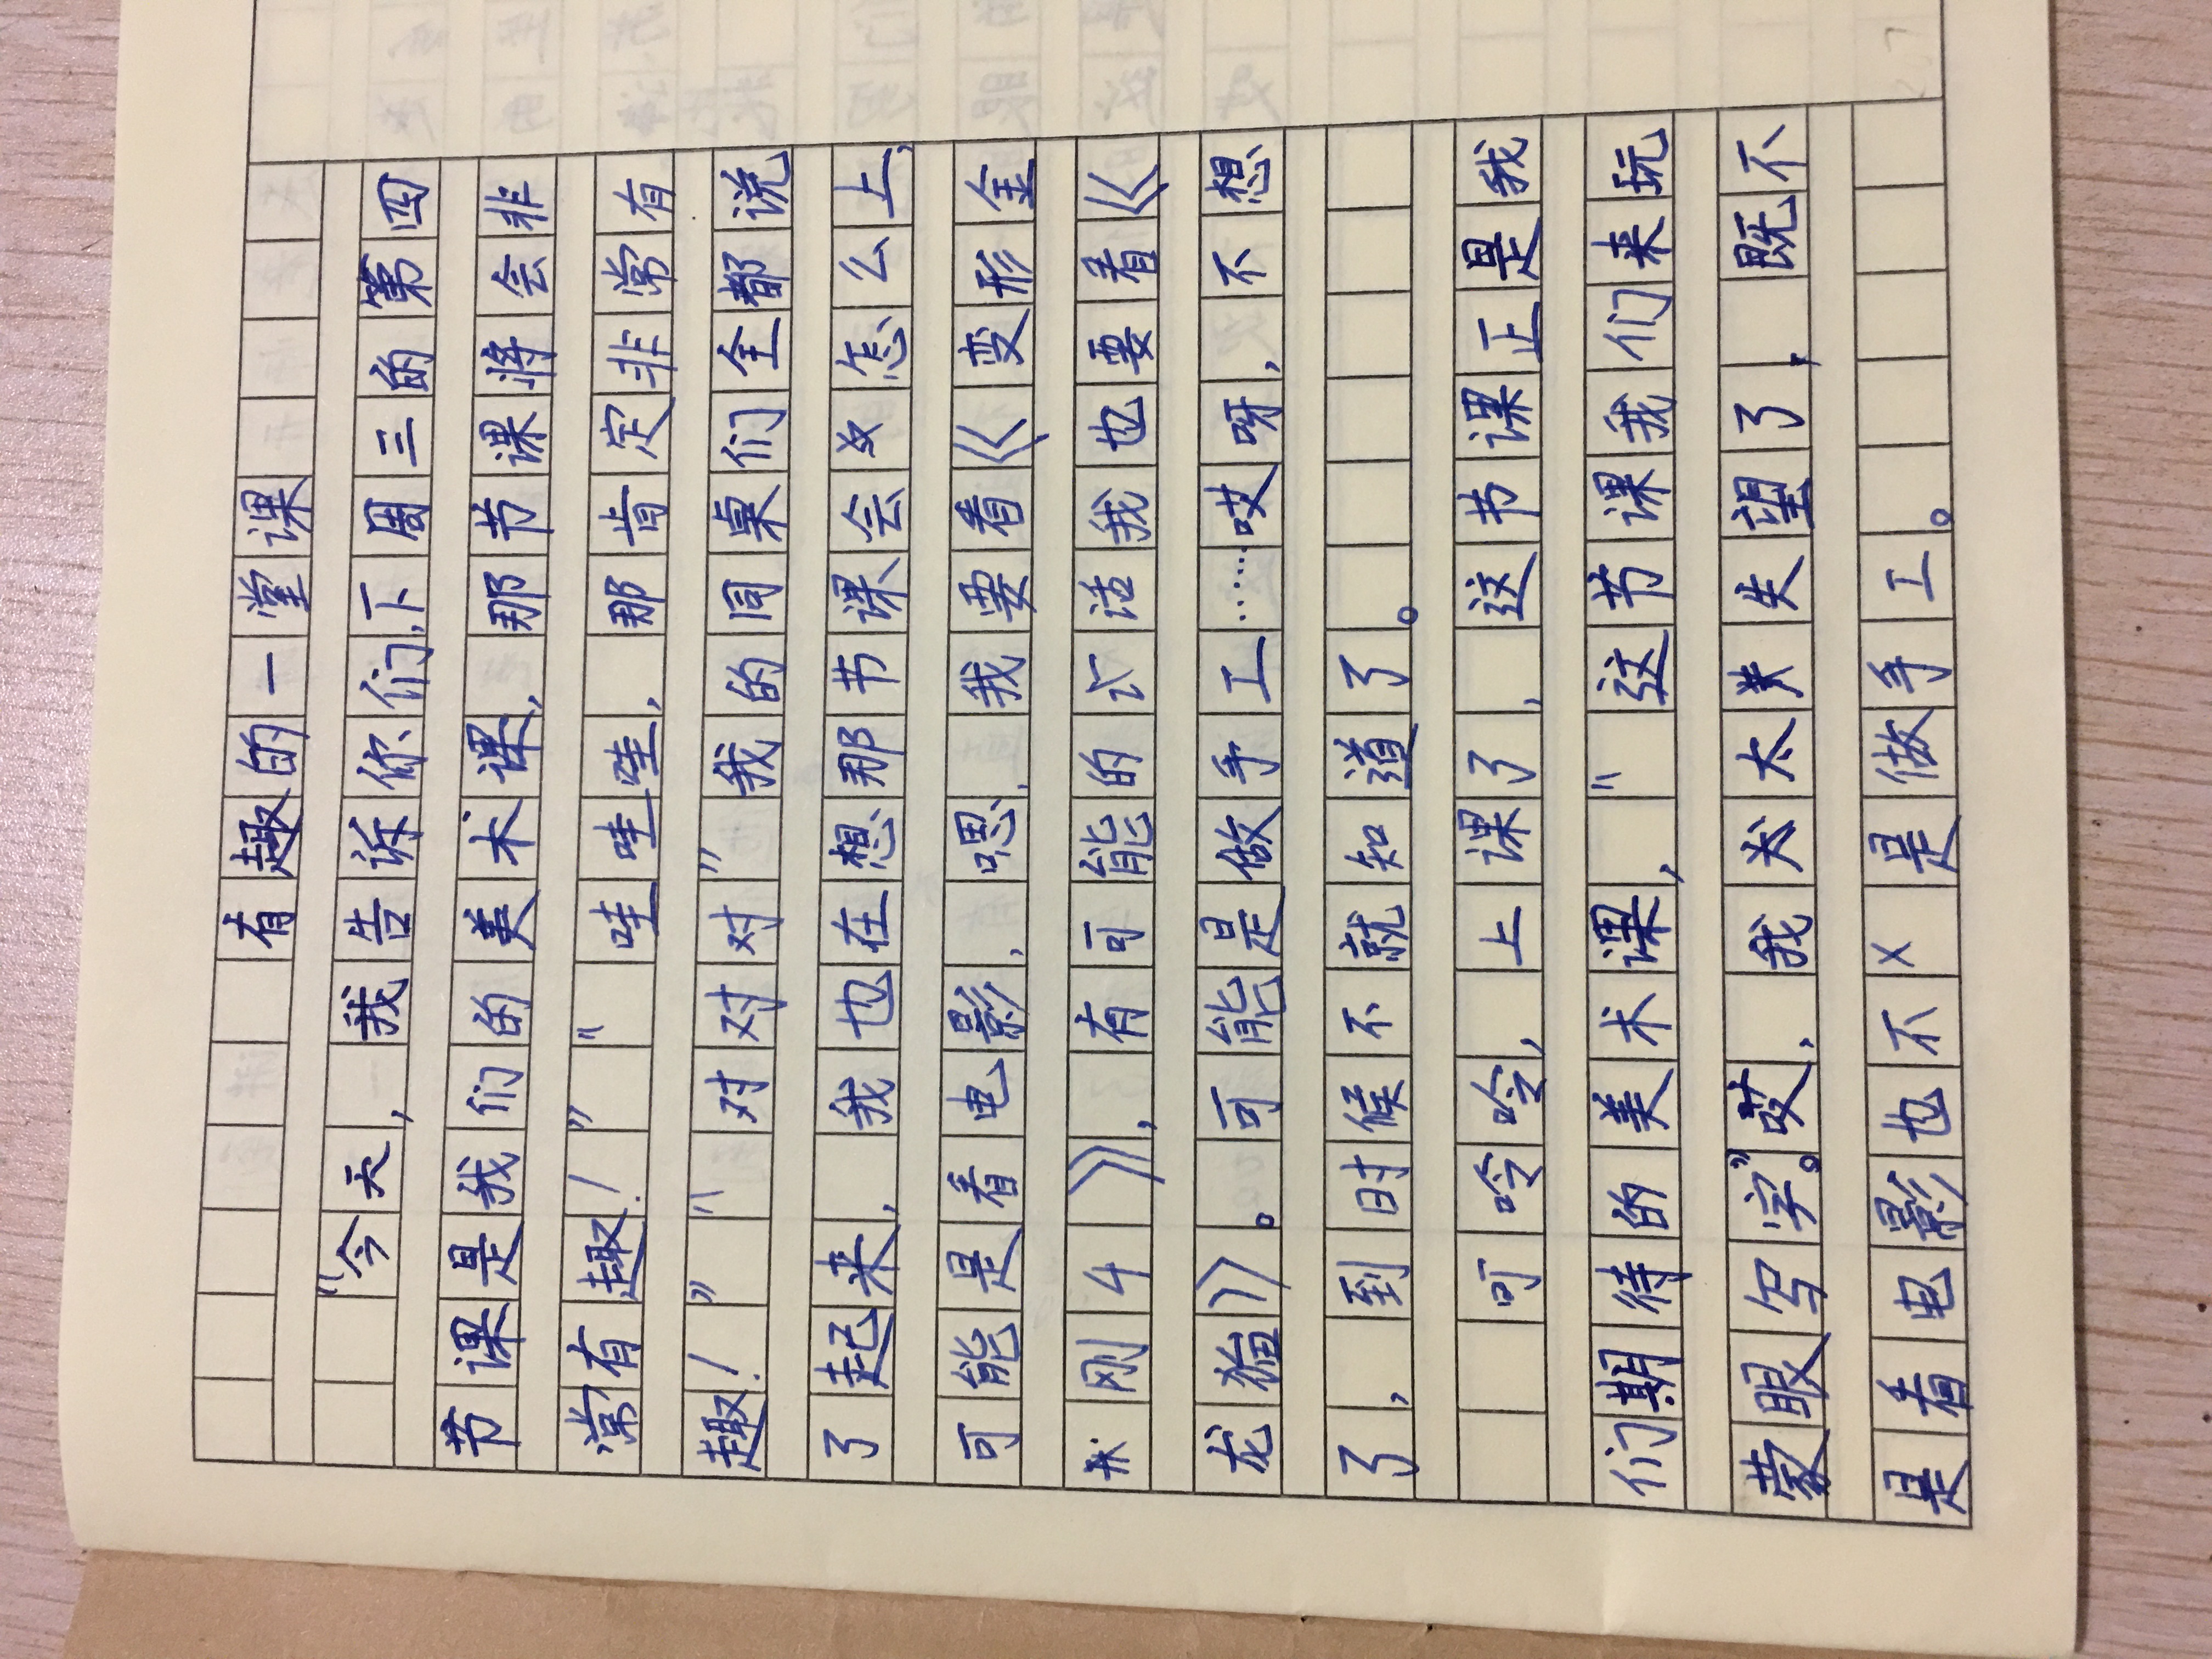 有趣的一堂课
“今天,我告诉你们,下周三的第四
节课是我们的美术课,那节课将会非
常有趣!”“哇哇哇,那肯定非常有
趣!”“对对对”我的同桌们全都说
了起来,我也在想那节课会怎么上,
可能是看电影,嗯,我要看《变形金
刚4》,有可能的话我也要看《
龙猫》。可能是做手工……哎呀,不想
了,到时候不就知道了。
可呤呤,上课了,这节课正是我
们期待的美术课,“这节课我们来玩
蒙眼写字”。哎,我太失望了,既不
是看电影也不是做手工。